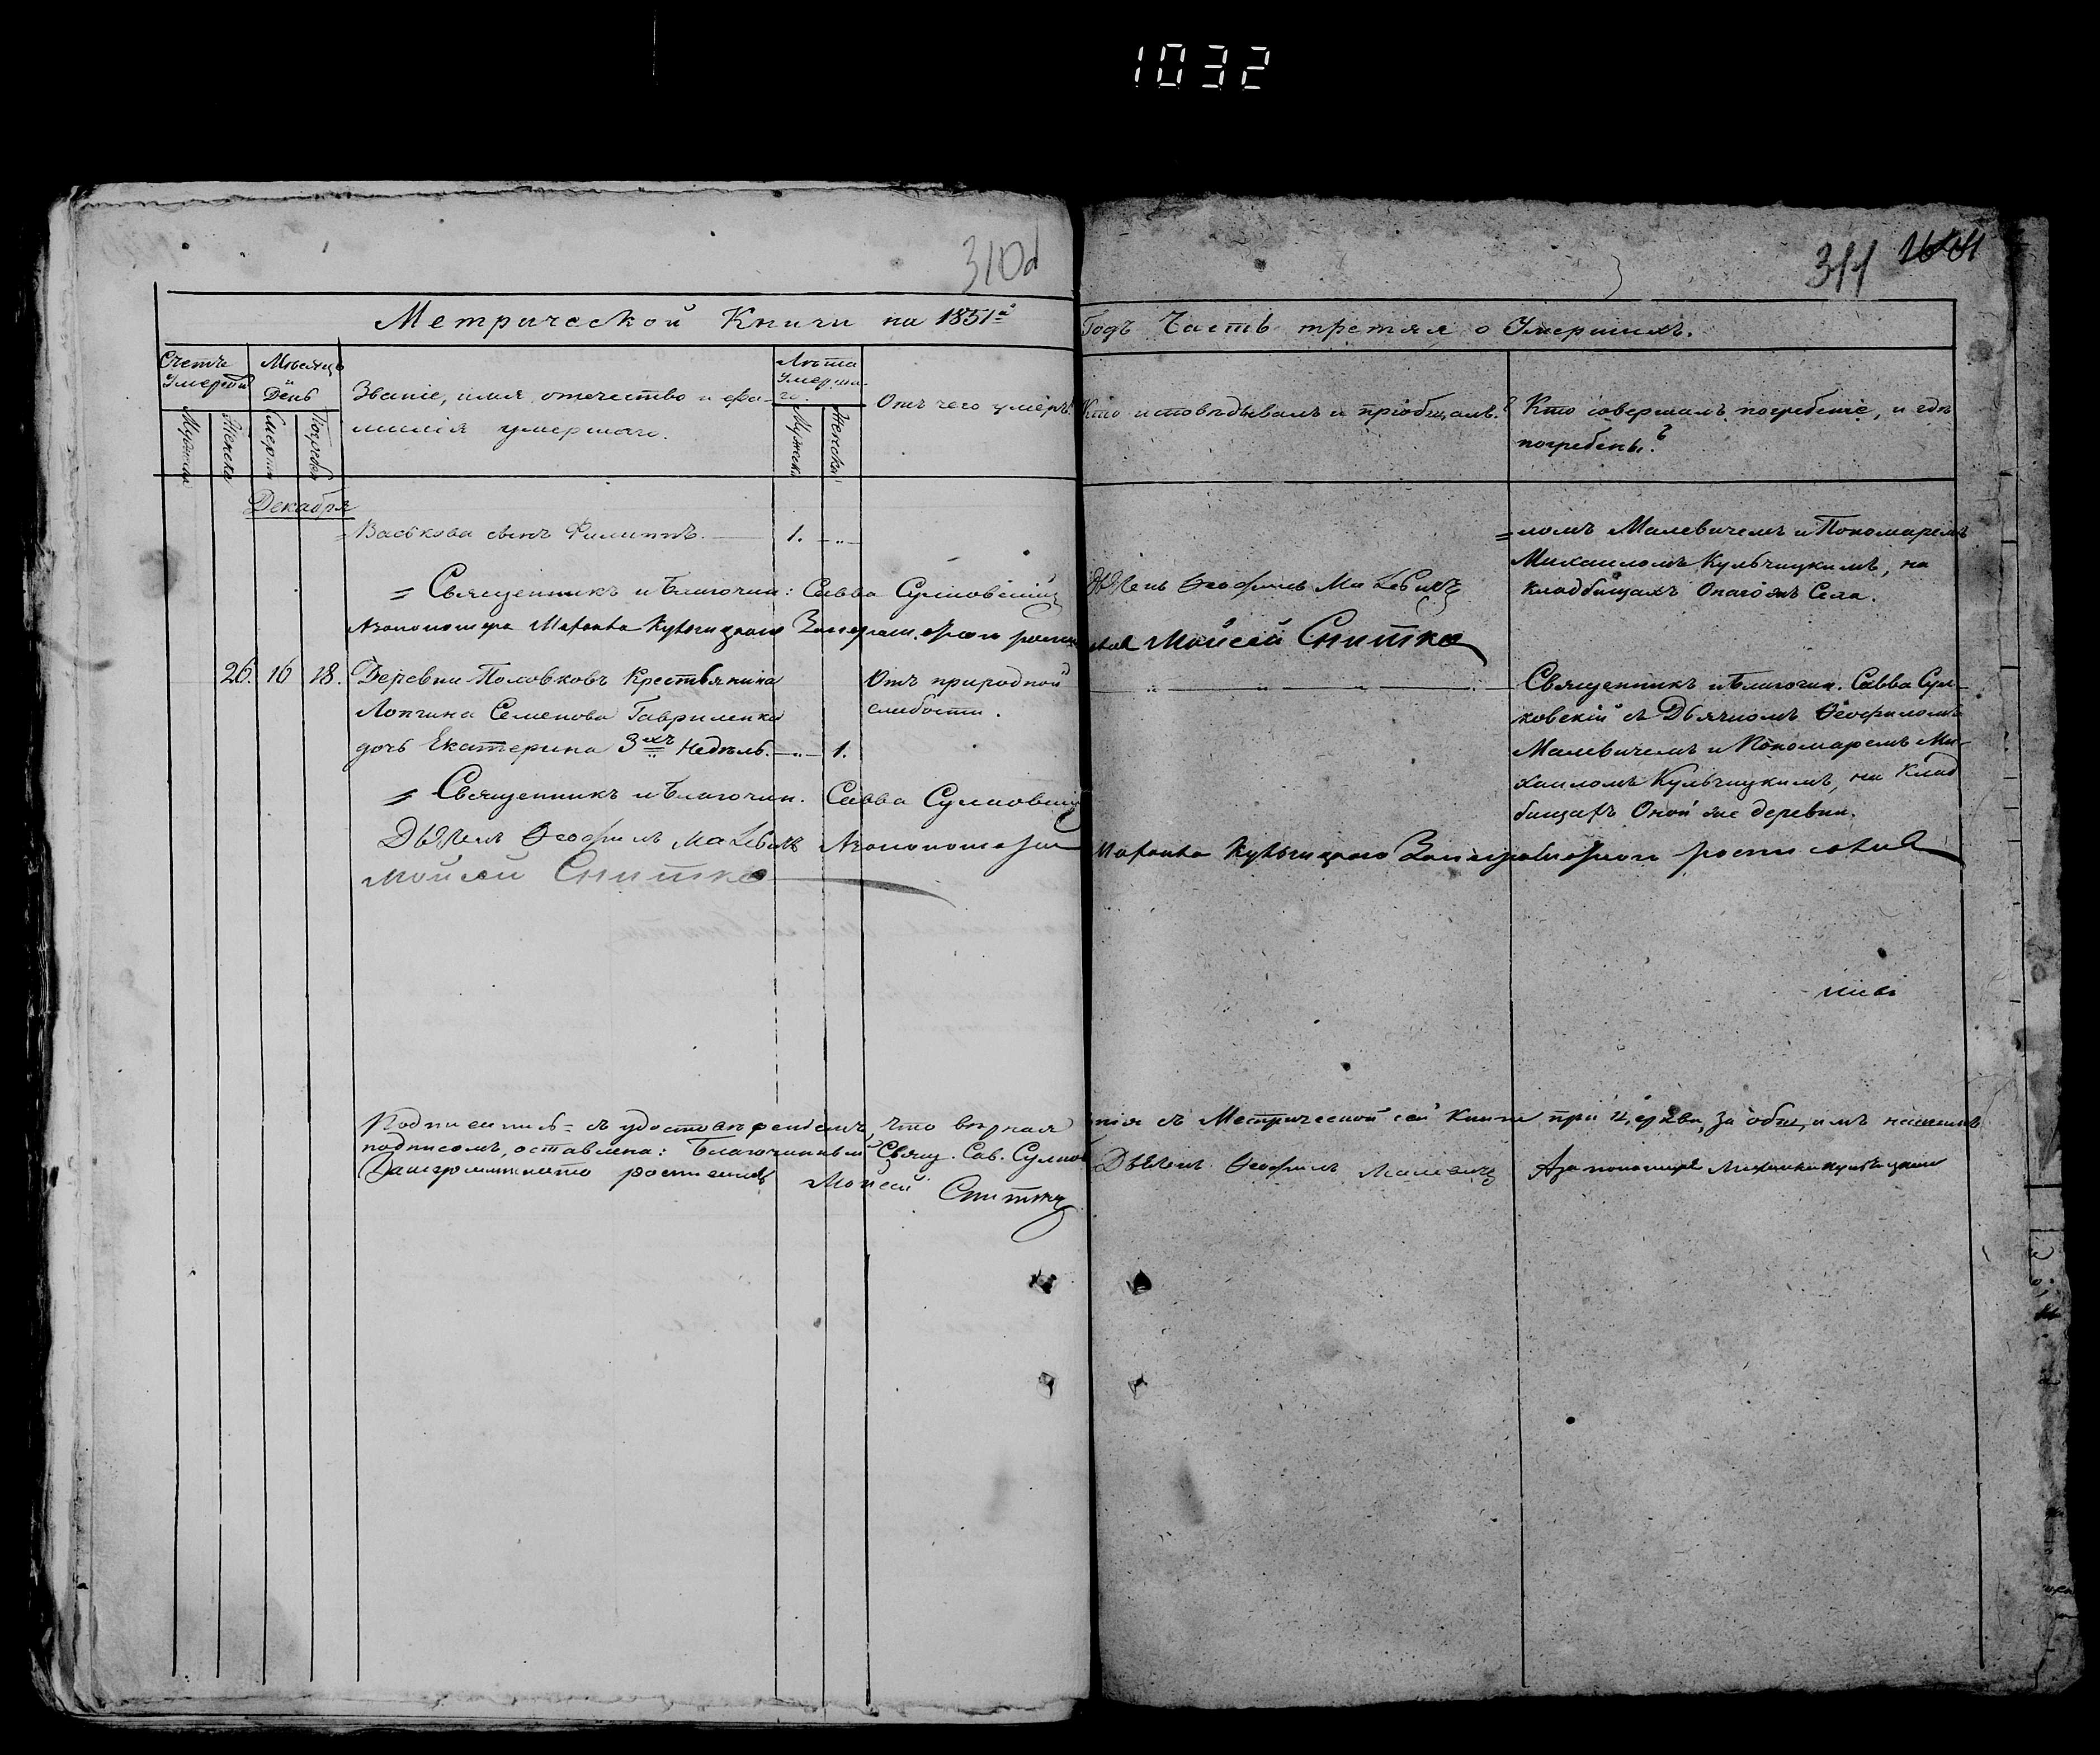 1032
310об
311 1601
Метрической Книги на 1851й Годъ Часть третяя о Умершихъ.
Счетъ Умерши
Мужеска
Женска
Мѣсяцъ и День
Смерти
Погребе
Званіе, имя, отечество и фа-
милія умершаго.
Лѣта Умерша-
го.
Мужеска
Женска
Отъ чего умеръ?
Кто исповѣдывалъ и пріобщалъ?
Кто совершалъ погребеніе, и гдѣ
погребены?
Декабря
Васькова сынъ Филиппъ. 1.
=ломъ Малевичемъ и Пономаремъ
Михаиломъ Кульчицкимъ, на
кладбищахъ Онагожъ Села.
= Священникъ и Благочин: Савва Сулковскій
Дьячекъ Ѳеофилъ Малевичъ
Азапономара Мафанва Кульчицкого
Мойсей Снитко
26. 16 18. Деревни Половковъ Крестьянина
Лонгина Семенова Гавриленка
дочь Екатерина 3хъ недѣль. 1.
Отъ природной
слабости.
Священникъ и Благочин. Савва Сул-
ковскій съ Дьячкомъ Ѳеофиломъ
Малевичемъ и Пономаремъ Ми-
хаиломъ Кульчицкимъ, на Клад
бищахъ Оной же деревни.
= Священникъ и Благочин. Савва Сулковскій
Дьячекъ Ѳеофилъ Малевичъ Азапономара Мафанва Кульчицкого
Мойсей Снитко
съ удостовѣреніемъ, что вѣрная
нія съ Метрической сей Книги при церкви, за общимъ нашимъ
подписомъ, оставлена: Благочинный Свящ. Сав. Сулков
Дьячекъ Ѳеофилъ Малевичъ
Мойсей Снитко